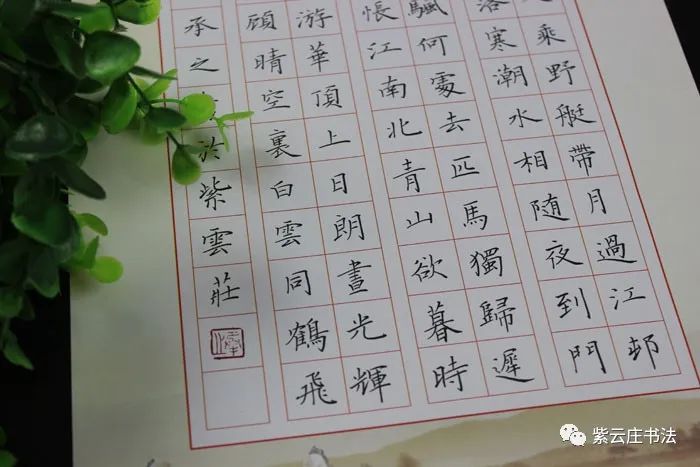 乘野艇帶月過江邨
落寒潮水相隨夜到門
颿何處去匹馬獨歸遲
悵江南北青山欲暮時
游華頂上日朗晝光輝
顧晴空裏白雲同鶴飛
承之於紫雲莊
紫云庄书法